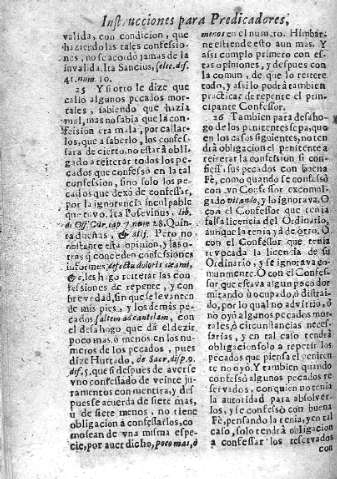 Instrucciones para Predicadores,
valida, con condicion, que
haziendo las tales confessio
nes, no se acodò jamas de la
invalida. Ita Sancius, selec. dis.
41. num. 10.
25 Y si otro le dize que
callò algunos pecados mor-
tales, sabiendo que hazia
mal, mas no sabia que la con-
fession era mala, por callar-
los, que a saberlo, los confes-
sara de cierto, no estarà obli-
gado a reiterar todos los pe-
cados que confessò en la tal
confession, sino solo los pe-
cados que dexò de confessar,
por la ignorancia inculpable
que tuvo. Ita Posevinus, lib.
de Off. Cur. cap 7. num 28. Quin-
tadueñas, & alij. Pero no
obstante esta opinion, y las o-
tras q̃ conceden confessiones
informes
&c. les hago reiterar las con-
fessiones de repente, y con
brevedad, sin que se levanten
de mis pies, y los demàs pe-
cados saltem in cantum, con
el desahogo que dà el dezir
poco mas, ò menos en los nu-
meros de los pecados, pues
dize Hurtado, de Sacr. disp. 9.
dif. 5. que si despues de averse
vno confessado de veinte ju-
ramentos con mentira, y des-
pues se acuerda de siete mas,
ù de siete menos, no tiene
obligacion à confessarlos, co-
mo sean de vna misma espe-
cie, por aver dicho, poco mas, ò
menos en el num. 10. Himbar.
ne estiende esto aun mas. Y
assi cumplo primero con es-
tas opiniones, y despues con
la comun, de que lo reitere
todo, y assi lo podrà tambien
practicar de repente el prin-
cipante Confessor.
26 Tambien para desaho-
go de los penitentes sepa, que
en los casos siguientes, no ten
drà obligacion el penitente a
reiterar la confession si con-
fiessa sus pecados con buena
Fè, como quando se confessò
con vn Confessor excomul-
gado vitando, y lo ignorava. O
con el Confessor que tenia
falsa licencia del Ordinario,
aunque la tenia ya de otro. O
con el Confessor que tenia
revocada la licencia de su
Ordinario, y se ignorava co-
munmente. O con el Confes-
sor que estava algun poco dor
mitando ù ocupado, ò distrai-
do, por lo qual no advirtiò, ò
no oyò algunos pecados mor-
tales, ò circunstancias neces-
sarias, y en tal caso tendrà
obligacion solo a repetir los
pecados que piensa el peniten
te no oyò. Y tambien quando
confessò algunos pecados re
servados, con quien no tenia
la autoridad para absolver-
los, y se confessò con buena
Fè, pensando la tenia, y en tal
caso, solo tendrà obligacion
a confessar los reservados
con